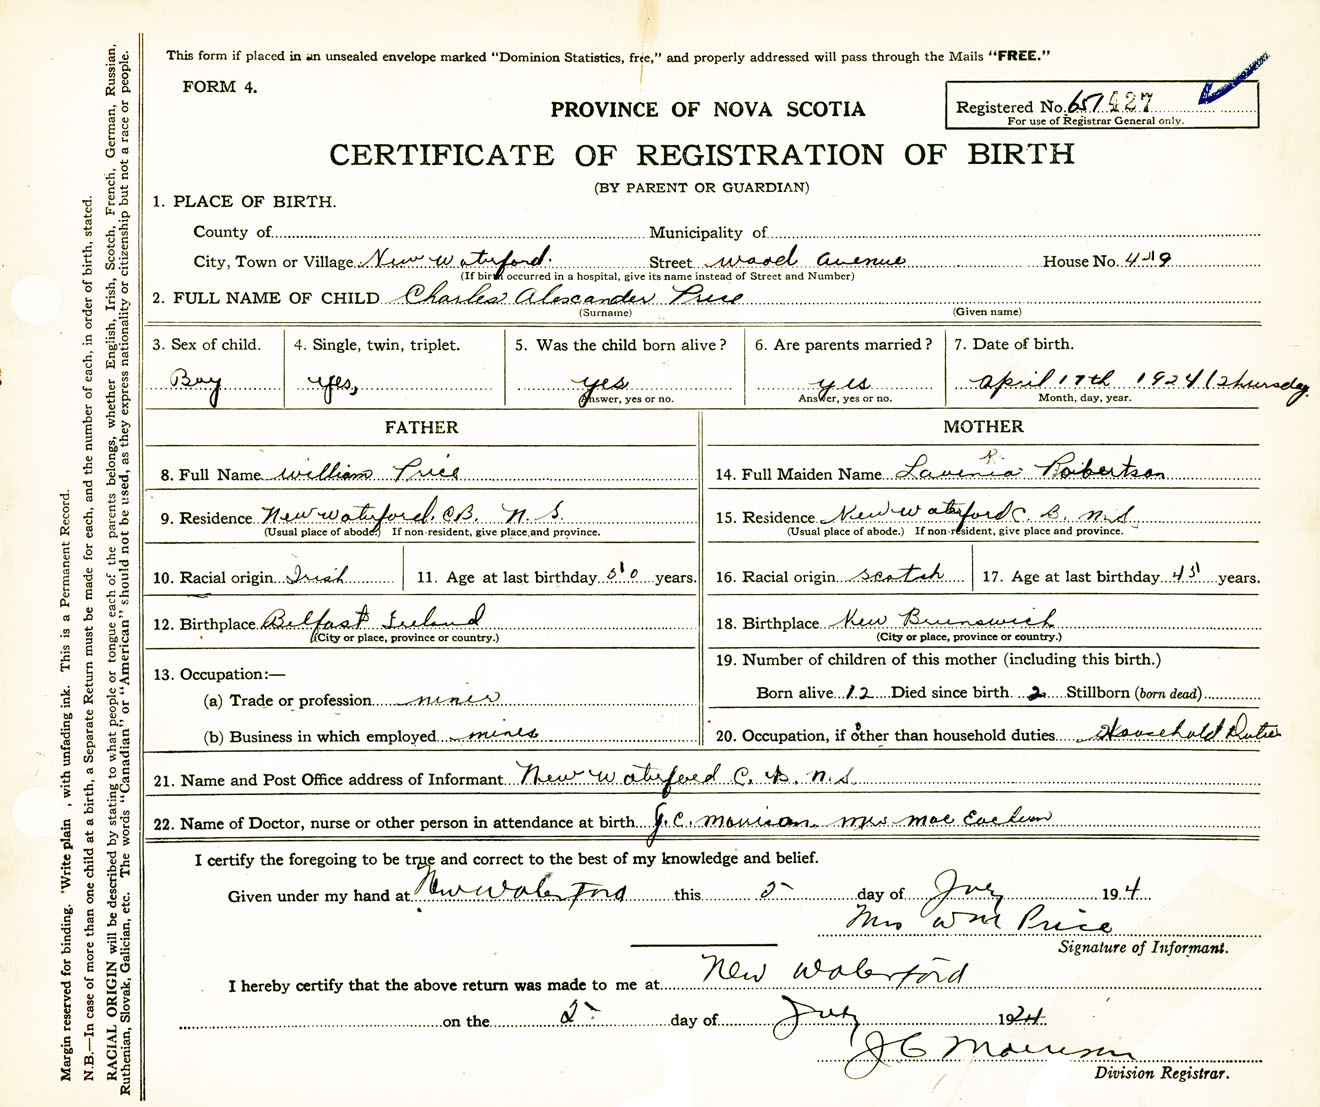 This form if placed in an unsealed envelope marked "Dominion Statistics, free," and properly addressed will pass through the Mails "FREE."
FORM 4.
PROVINCE OF NOVA SCOTIA
Registered No. 651427
For use of Registrar General only.
CERTIFICATE OF REGISTRATION OF BIRTH
(BY PARENT OR GUARDIAN)
1. PLACE OF BIRTH.
County of Municipality of
City, Town or Village New Waterford. Street Wood Avenue House No. 419
(If birth occurred in a hospital, give its name instead of Street and Number)
2. FULL NAME OF CHILD Charles Alexcander Price
(Surname) (Given name)
3. Sex of child. 4. Single, twin, triplet. 5. Was the child born alive? 6. Are parents married? 7. Date of birth.
Boy yes, yes yes April 17th 1924 Thursday
Answer, yes or no. Answer, yes or no. Month, day, year.
FATHER MOTHER
8. Full Name William Price 14. Full Maiden Name Lavenia R. Roibertson
9. Residence New Waterford. C.B. N.S. 15. Residence New Waterford C. B. N.S.
(Usual place of abode.) If non-resident, give place and province. (Usual place of abode.) If non-resident, give place and province.
10. Racial origin Irish 11. Age at last birthday 50 years. 16. Racial origin Scotch 17. Age at last birthday 45 years.
12. Birthplace Belfast Ireland 18. Birthplace New Brunswick
(City or place, province or country.) (City or place, province or country.)
13. Occupation:— 19. Number of children of this mother (including this birth.)
(a) Trade or profession miner Born alive 12 Died since birth 2 Stillborn (born dead)
(b) Business in which employed mines 20. Occupation, if other than household duties Household Duties
21. Name and Post Office address of Informant New Waterford C. B. N.S.
22. Name of Doctor, nurse or other person in attendance at birth J.C. Morrison Mrs Mac Eachern
I certify the foregoing to be true and correct to the best of my knowledge and belief.
Given under my hand at New Waterford this 5 day of July 194
Mrs Wm Price
Signature of Informant.
I hereby certify that the above return was made to me at New Waterford
on the 5 day of July 1924
J C Morrison
Division Registrar.
Margin reserved for binding. Write plain, with unfading ink. This is a Permanent Record.
N.B.—In case of more than one child at a birth, a Separate Return must be made for each, and the number of each, in order of birth, stated.
RACIAL ORIGIN will be described by stating to what people or tongue each of the parents belongs, whether English, Irish, Scotch, French, German, Russian,
Ruthenian, Slovak, Galician, etc. The words "Canadian" or "American" should not be used, as they express nationality or citizenship but not a race or people.